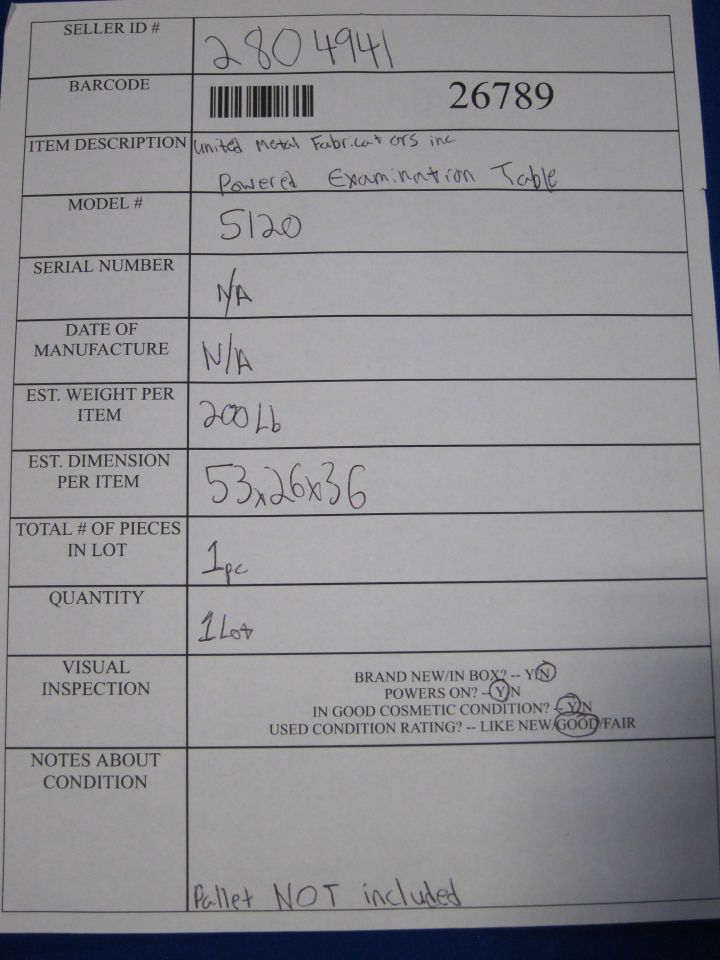 SELLER ID # 2804941
BARCODE 26789
ITEM DESCRIPTION United Metal Fabricators inc
Powered Examination Table
MODEL # 5120
SERIAL NUMBER N/A
DATE OF
MANUFACTURE N/A
EST. WEIGHT PER
ITEM 200 Lb
EST. DIMENSION
PER ITEM 53x26x36
TOTAL # OF PIECES
IN LOT 1pc
QUANTITY 1 Lot
VISUAL
INSPECTION
BRAND NEW/IN BOX? -- Y/N
POWERS ON? --Y/N
IN GOOD COSMETIC CONDITION? -- Y/N
USED CONDITION RATING? -- LIKE NEW/GOOD/FAIR
NOTES ABOUT
CONDITION
Pallet NOT included